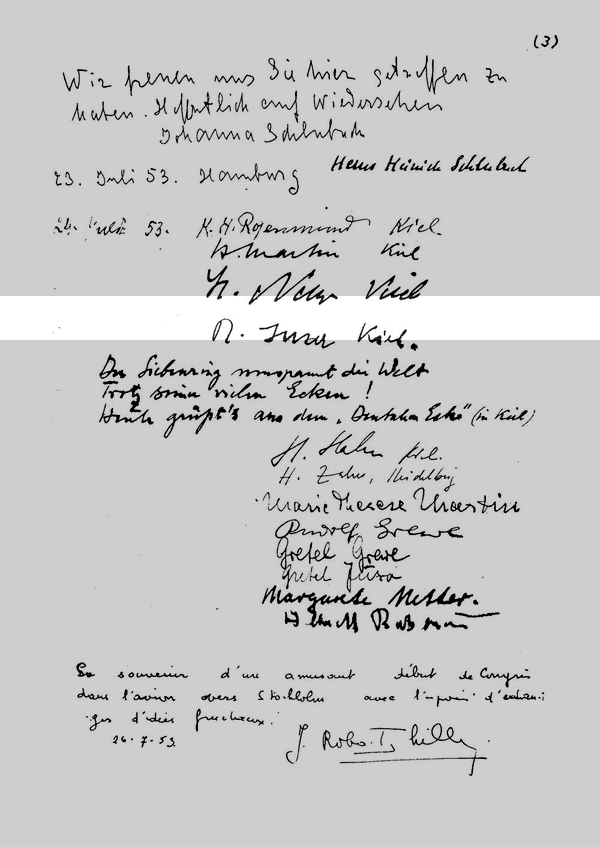 (3)
Wir freuen uns Sie hier getroffen zu
haben. Hoffentlich auf Wiedersehen
Johanna Schlubach
Hans Heinrich Schlubach
23. Juli 53. Hamburg
24. Juli 53. K. H. Rojenmund Kiel.
H. Martin Kiel
H. Kiel
R. Kiel.
Der Siebenring umspannt die Welt
Trotz seiner vielen Ecken!
Heute grüßt's aus dem „Deutschen Eck" (in Kiel)
H. Hahn Kiel.
H. Zahn, Heidelberg
Marie Therese Martin
Rudolf Grewe
Gretel Grewe
Gretel Juza
Margarete Netter.
En souvenir d'un amusant début de Congrès
dans l'avion vers Stockholm avec l'espoir d'échan-
ges d'idées
26-7-53
J.